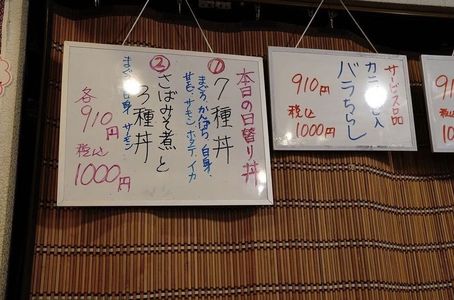 本日の日替り丼
① 7種丼
まぐろ かんぱち 白身
甘エビ サーモン ホタテ イカ
② さばみそ煮と
3種丼
まぐろ 白身 サーモン
各910円
税込
1000円
サービス品
バラちらし
910円
税込
1000円